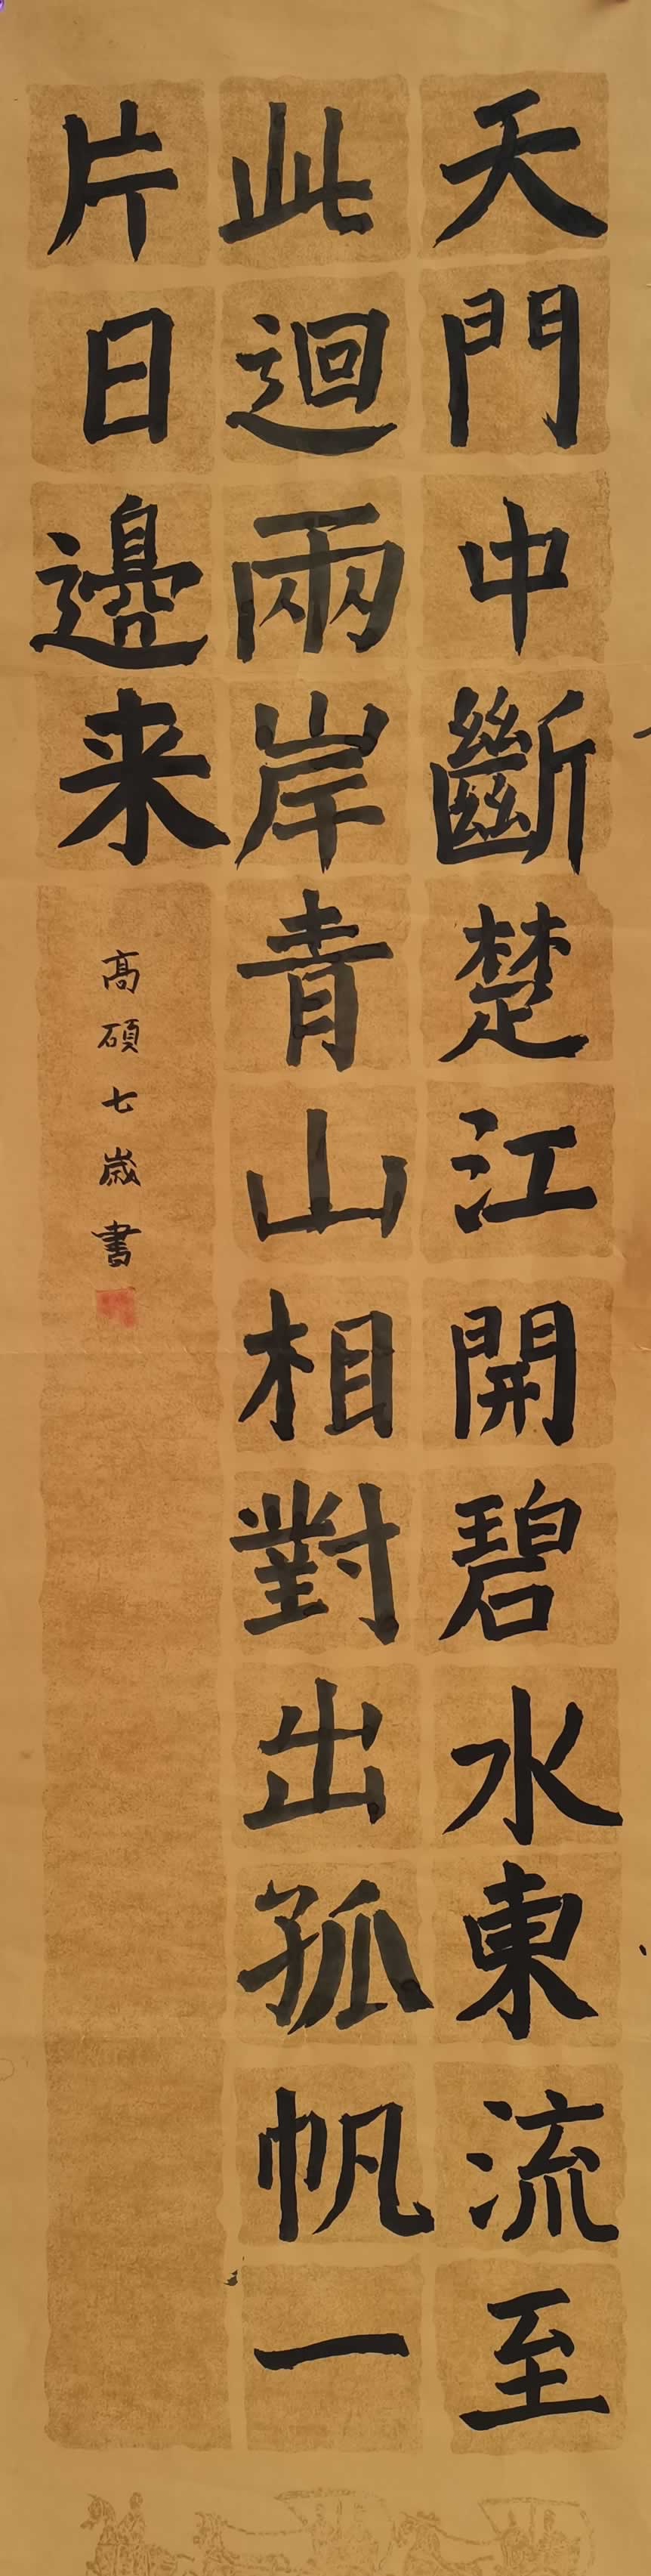 天門中斷楚江開碧水東流至
此迴兩岸青山相對出孤帆一
片日邊来
高碩七歲書